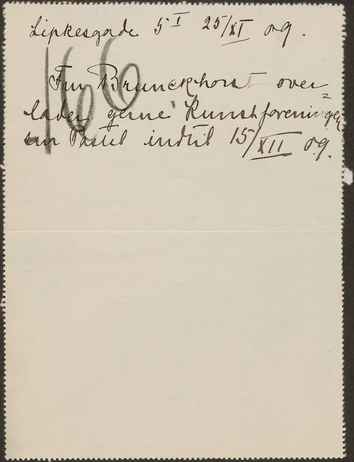 Lipkesgade 5 I 25/XI 09.
166
Fru Brunckhorst over=
lader gerne Kunstforeningen
sin Pastel indtil 15/XII 09.